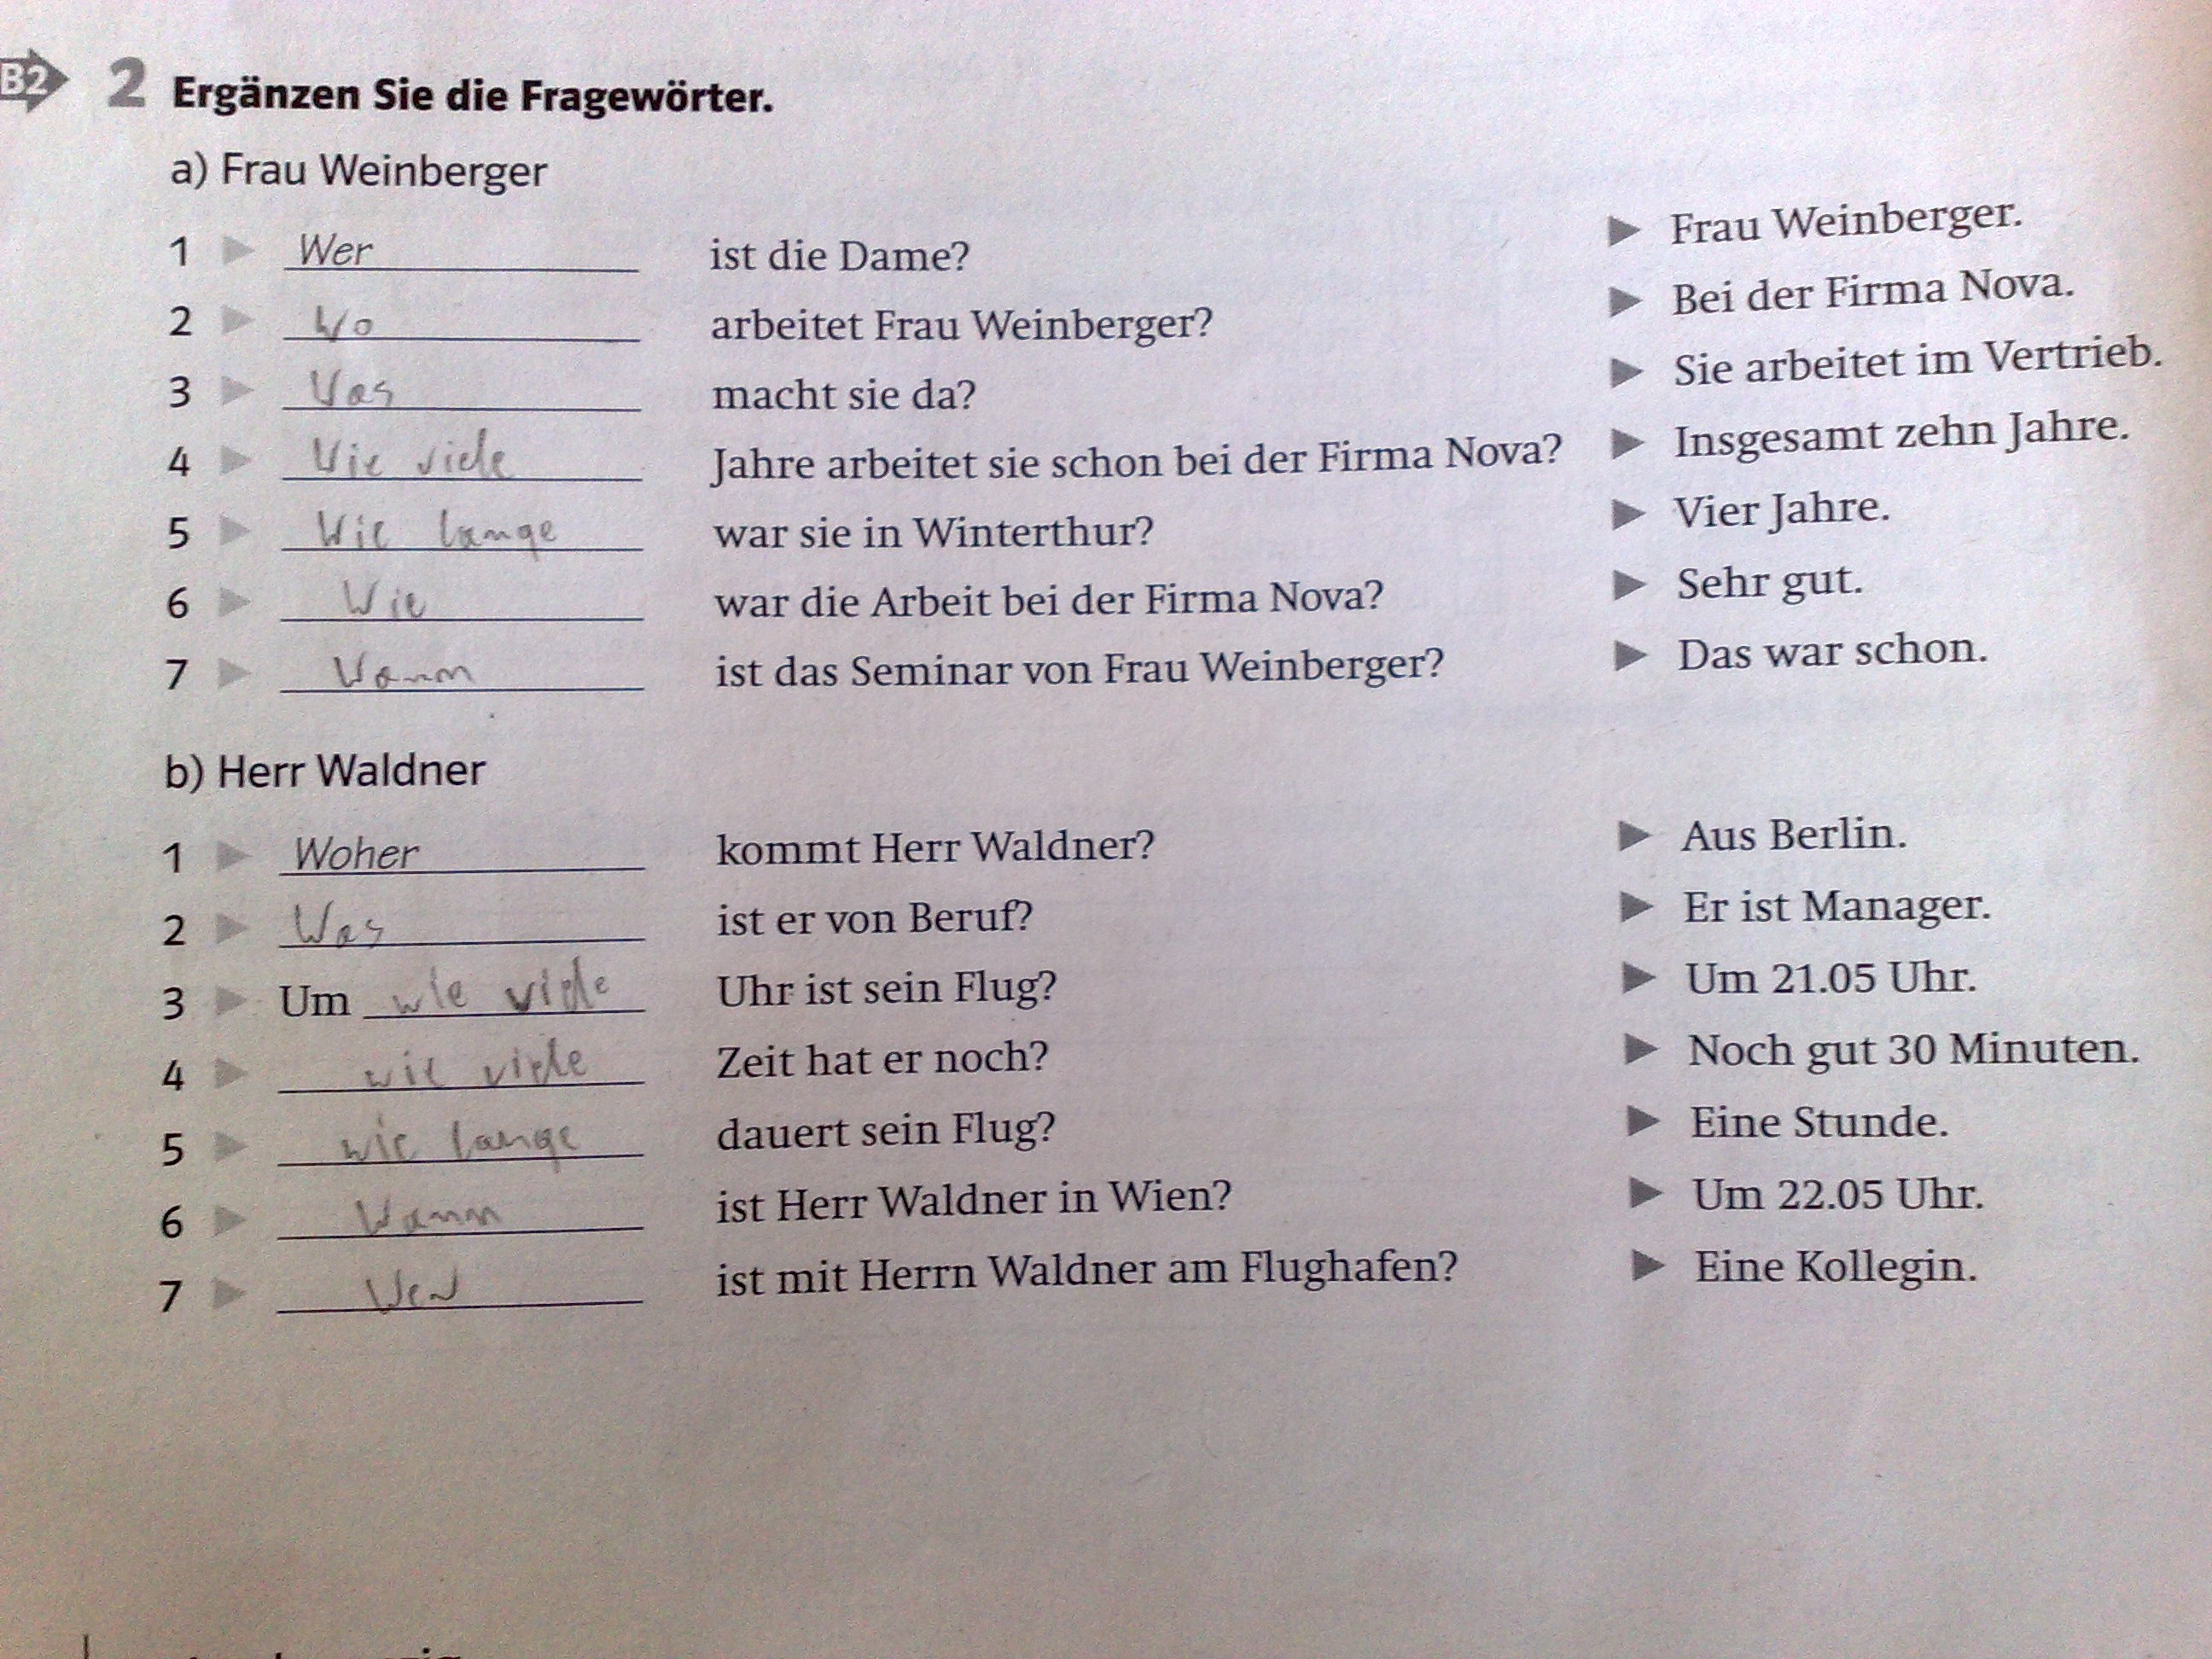 B2 2 Ergänzen Sie die Fragewörter.
a) Frau Weinberger
1 Wer ist die Dame? Frau Weinberger.
2 Wo arbeitet Frau Weinberger? Bei der Firma Nova.
3 Was macht sie da? Sie arbeitet im Vertrieb.
4 Wie viele Jahre arbeitet sie schon bei der Firma Nova? Insgesamt zehn Jahre.
5 Wie lange war sie in Winterthur? Vier Jahre.
6 Wie war die Arbeit bei der Firma Nova? Sehr gut.
7 Wann ist das Seminar von Frau Weinberger? Das war schon.
b) Herr Waldner
1 Woher kommt Herr Waldner? Aus Berlin.
2 Was ist er von Beruf? Er ist Manager.
3 Um wie viele Uhr ist sein Flug? Um 21.05 Uhr.
4 wie viele Zeit hat er noch? Noch gut 30 Minuten.
5 wie lange dauert sein Flug? Eine Stunde.
6 Wann ist Herr Waldner in Wien? Um 22.05 Uhr.
7 Wer ist mit Herrn Waldner am Flughafen? Eine Kollegin.